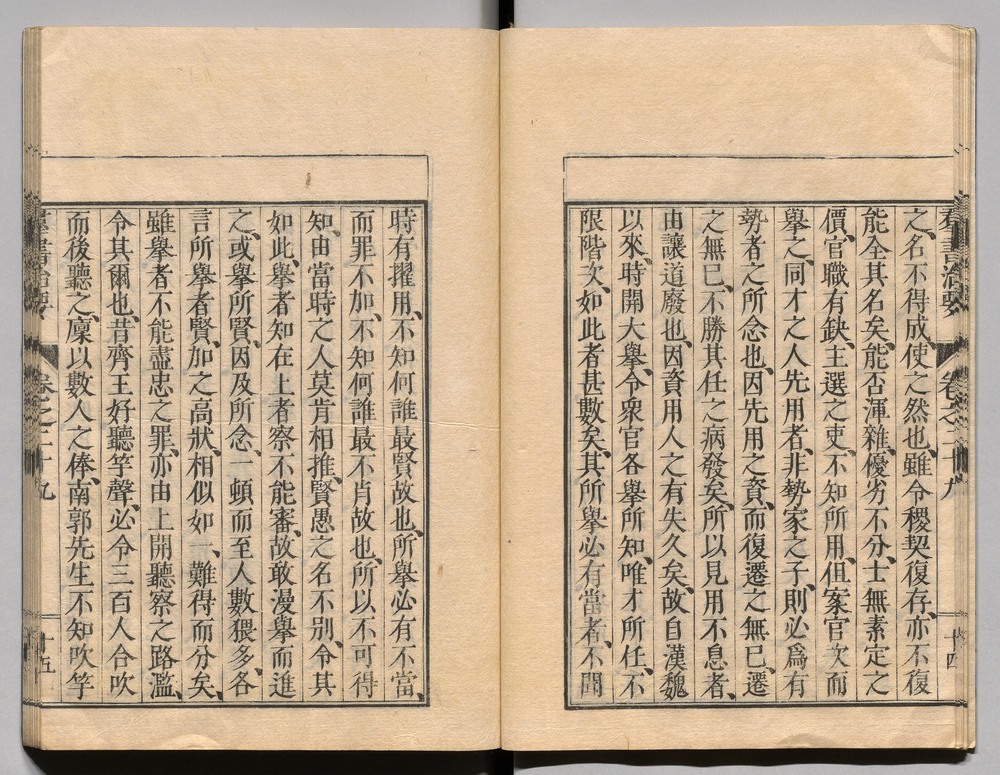 羣書治要 卷之二十九 十四
之名不得成、使之然也、雖令稷契復存、亦不復
能全其名矣、能否渾雜、優劣不分、士無素定之
價、官職有缺、主選之吏、不知所用、但案官次而
擧之、同才之人先用者、非勢家之子、則必爲有
勢者之所念也、因先用之資、而復遷之無已、遷
之無已、不勝其任之病發矣、所以見用不息者、
由讓道廢也、因資用人之有失久矣、故自漢魏
以來、時開大擧、令衆官各擧所知、唯才所任、不
限階次、如此者甚數矣、其所擧必有當者、不聞
時有擢用、不知何誰最賢故也、所擧必有不當、
而罪不加、不知何誰最不肖故也、所以不可得
知、由當時之人莫肯相推、賢愚之名不別、令其
如此、擧者知在上者察不能審、故敢漫擧而進
之、或擧所賢、因及所念、一頓而至人數猥多、各
言所擧者賢、加之高狀、相似如一、難得而分矣、
雖擧者不能盡忠之罪、亦由上開聽察之路濫、
令其爾也、昔齊王好聽竽聲、必令三百人合吹
而後聽之、廩以數人之俸、南郭先生不知吹竽
羣書治要 卷之二十九 十五